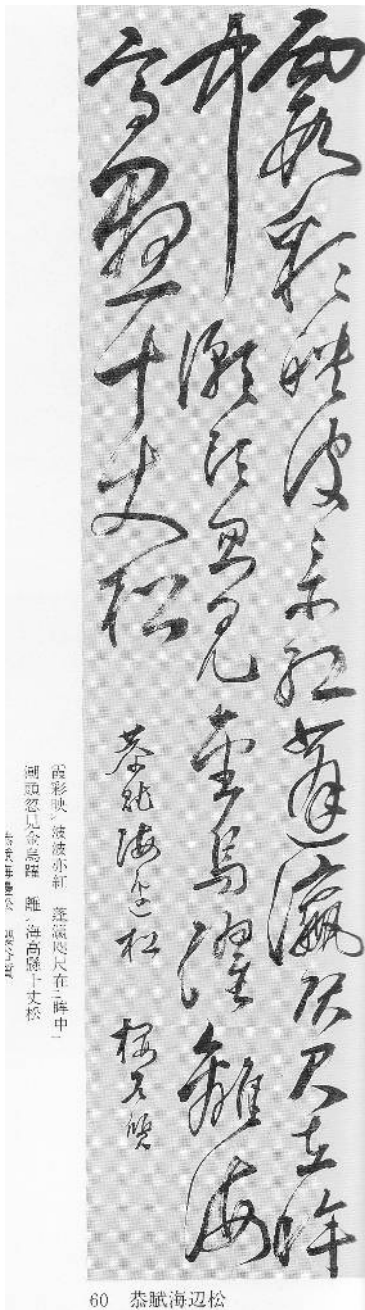 霞彩映波〻亦紅蓬瀛咫尺在眸
中潮頭忽見金烏躍離海
高懸十丈松
恭賦海邊松
霞彩映レ波波亦紅 蓬瀛咫尺在二眸中一
潮頭忽見金烏躍 離レ海高懸十丈松
60 恭賦海辺松